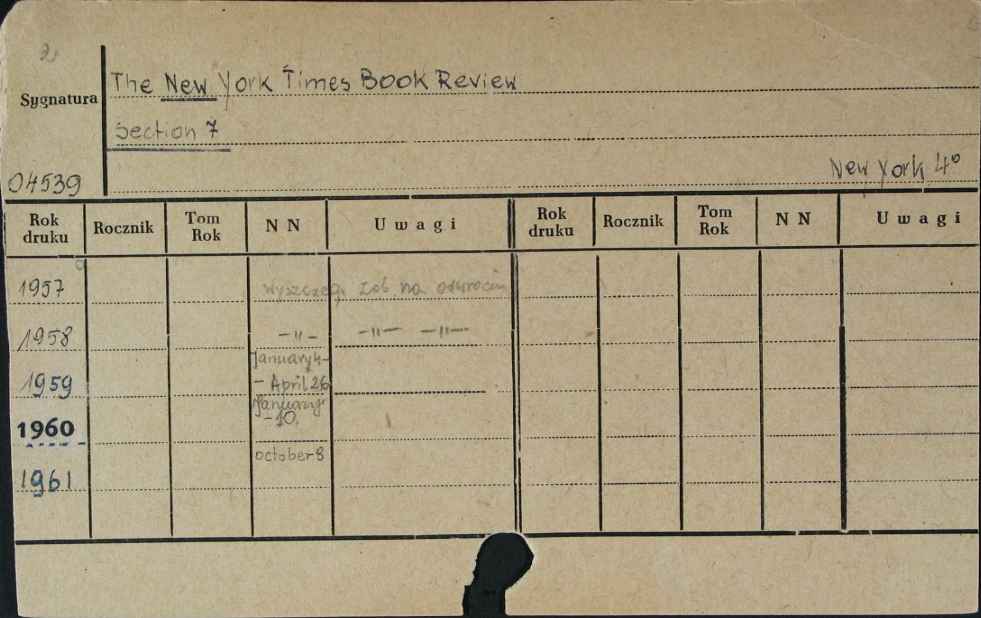 The New York Times Book Review
Sygnatura
Section 7
04539
New York 4°
Rok druku Rocznik Tom Rok N N Uwagi Rok druku Rocznik Tom Rok N N Uwagi
1957 wyszczeg. zob. na odwrocie
1958 -"- -"- -"-
January 4-
1959 - April 26
January
1960 -10.
october 8
1961